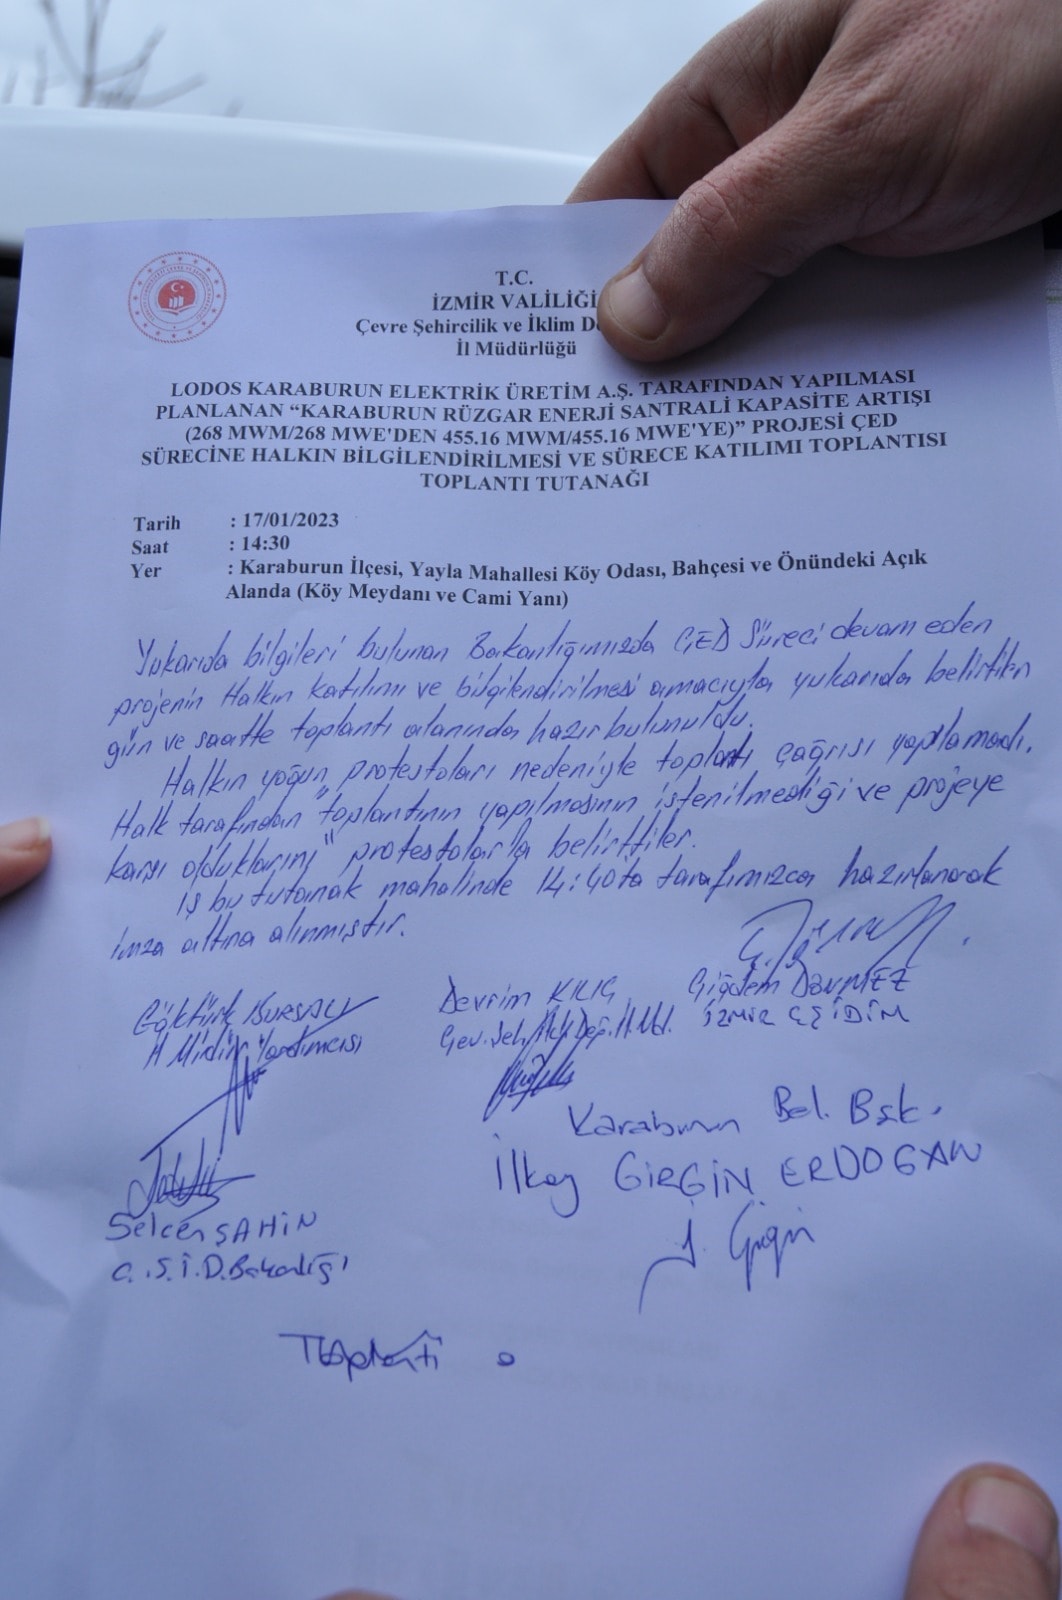 T.C.
İZMİR VALİLİĞİ
Çevre Şehircilik ve İklim De
İl Müdürlüğü
LODOS KARABURUN ELEKTRİK ÜRETİM A.Ş. TARAFINDAN YAPILMASI
PLANLANAN “KARABURUN RÜZGAR ENERJİ SANTRALİ KAPASİTE ARTIŞI
(268 MWM/268 MWE'DEN 455.16 MWM/455.16 MWE'YE)” PROJESİ ÇED
SÜRECİNE HALKIN BİLGİLENDİRİLMESİ VE SÜRECE KATILIMI TOPLANTISI
TOPLANTI TUTANAĞI
Tarih : 17/01/2023
Saat : 14:30
Yer : Karaburun İlçesi, Yayla Mahallesi Köy Odası, Bahçesi ve Önündeki Açık
Alanda (Köy Meydanı ve Cami Yanı)
Yukarıda bilgileri bulunan Bakanlığımızda ÇED Süreci devam eden
projenin Halkın katılımı ve bilgilendirilmesi amacıyla yukarıda belirtilen
gün ve saatte toplantı alanında hazır bulunuldu.
Halkın yoğun protestoları nedeniyle toplantı çağrısı yapılamadı.
Halk tarafından "toplantının yapılmasının istenilmediği ve projeye
karşı olduklarını" protestolarla belirttiler.
İş bu tutanak mahalinde 14:40'ta tarafımızca hazırlanarak
imza altına alınmıştır.
Göktürk BURSALI
Devrim KILIÇ
Çiğdem DÖNMEZ
İl Müdür Yardımcısı
Çev. Şeh. İkl. Değ. İl Md.
İZMİR ÇŞİDİM
Karaburun Bel. Bşk.
İlkay GİRGİN ERDOĞAN
Selcen ŞAHİN
Ç.Ş.İ.D. Bakanlığı
İ. Girgin
Toplantı